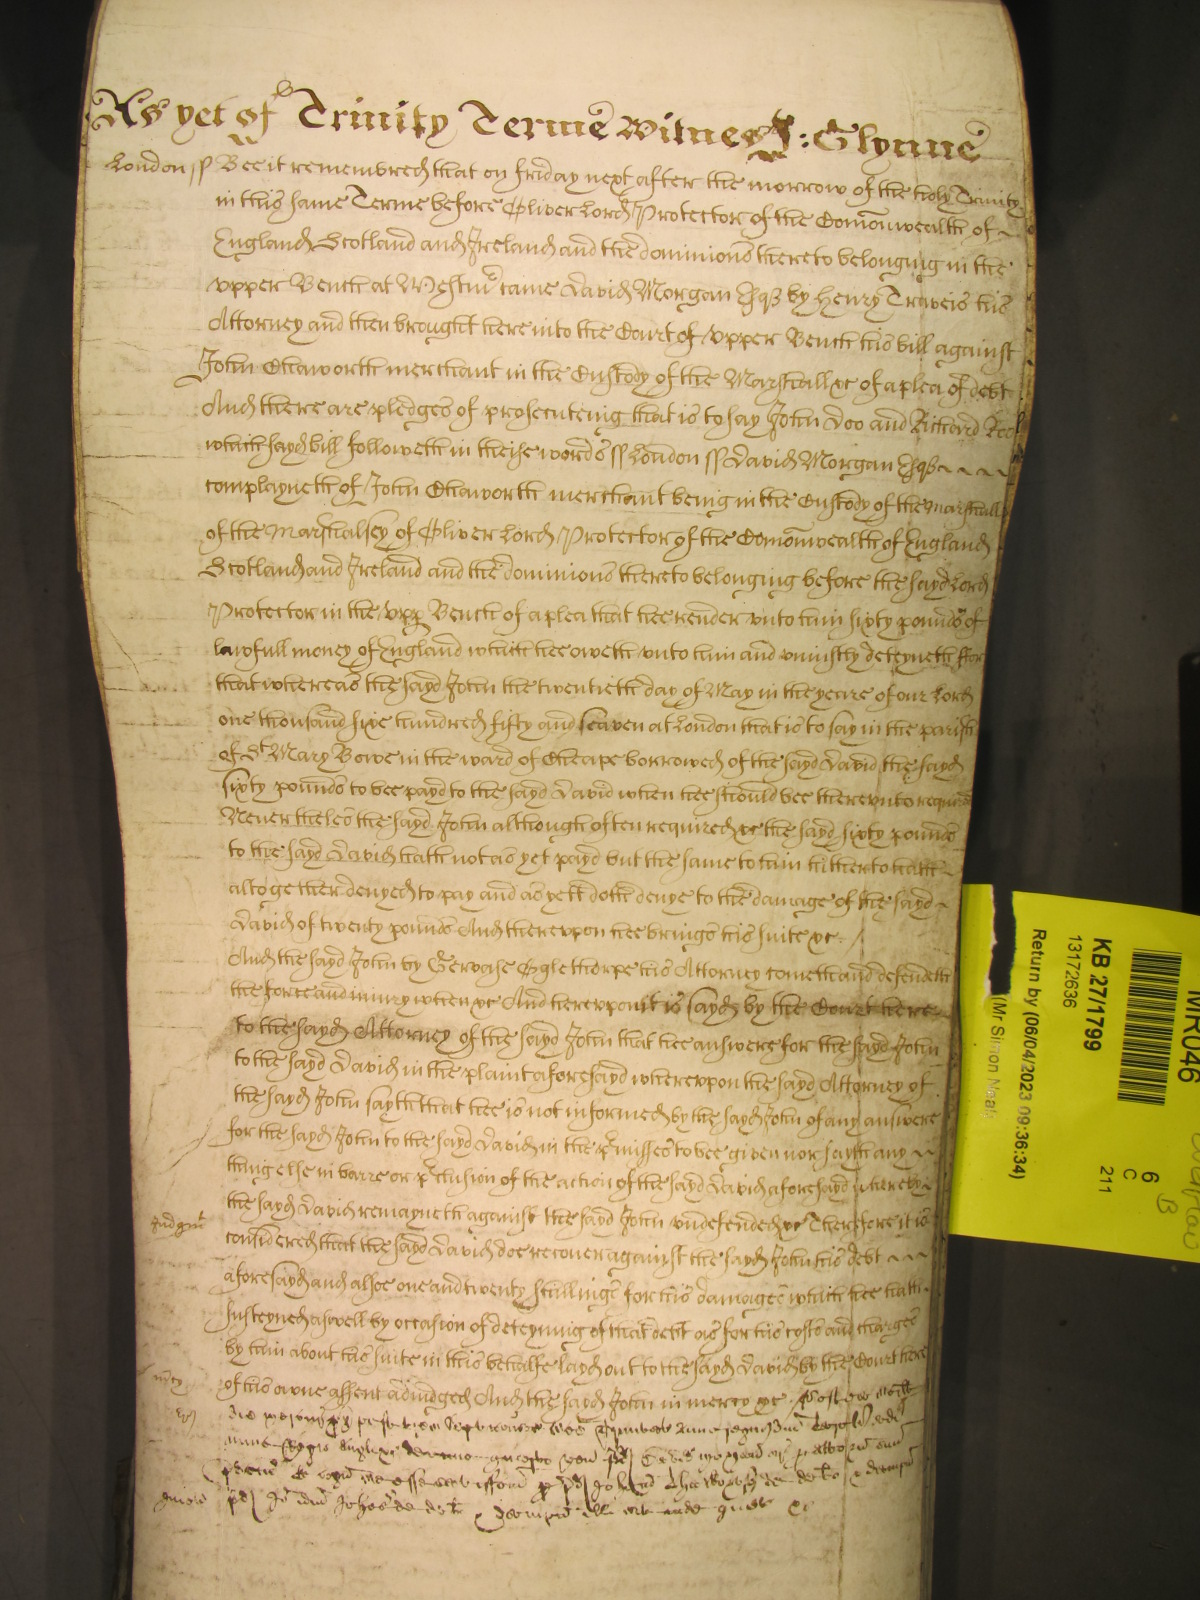 As yet of Trinity Terme Witnes J: Glynne
London ss Bee it remembred that on friday next after the morrow of the holy Trinity
in this same Terme before Oliver Lord Protector of the Comonwealth of
England Scotland and Ireland and the dominions thereto belonging in the
upper Bench at Westmr came David Morgan Esqr by Henry Traveis his
Attorney and then brought here into the Court of upper Bench his bill against
John Chaworth merchant in the Custody of the Marshall &c of a plea of debt
And there are pledges of prosecuteing that is to say John Doo and Richard Roo
which sayd bill followeth in theise words ss London ss David Morgan Esqr
complayneth of John Chaworth merchant being in the Custody of the marshall
of the Marshalsey of Oliver Lord Protector of the Comonwealth of England
Scotland and Ireland and the dominions thereto belonging before the sayd Lord
Protector in the upp Bench of a plea that hee render unto him sixty pounds of
lawfull money of England which hee oweth unto him and uniustly deteyneth ffor
that whereas the sayd John the twentieth day of May in the yeare of our Lord
one thousand sixe hundred fifty and seaven at London that is to say in the parish
of St Mary Bowe in the ward of Cheape borrowed of the sayd David the sayd
sixty pounds to bee payd to the sayd David when hee should bee thereunto required
Neverthelesse the sayd John although often required &c the sayd sixty pounds
to the sayd David hath not as yet payd but the same to him hitherto hath
altogether denyed to pay and as yett doth denye to the damage of the sayd
David of twenty pounds And thereupon hee brings his suite &c
And the sayd John by Gervase Oglethorpe his Attorney cometh and defendeth
the force and iniury when &c And hereupon it is sayd by the Court here
to the sayd Attorney of the sayd John that hee answere for the sayd John
to the sayd David in the plaint aforesayd whereupon the sayd Attorney of
the sayd John sayth that hee is not informed by the sayd John of any answere
for the sayd John to the sayd David in the pmisses to bee given nor sayth any
thing else in barre or pclusion of the action of the sayd David aforesayd whereby
the sayd David remayneth against the sayd John undefended &c Therefore it is
Iudgmt
considered that the sayd David doe recover against the sayd John his debt
aforesayd and alsoe one and twenty shillings for his damages which hee hath
susteyned aswell by occasion of deteyning of that debt as for his costs and charges
by him about his suite in this behalfe layd out to the sayd David by the Court here
mcy
of his owne assent adiudged And the sayd John in mercy &c Postea
anno regni
nunc Regis Anglie &c
quiet &c
MR046
KB 27/1799
13172636
Return by (06/04/2023 09:36:34)
(Mr Simon Neal)
6
C
211